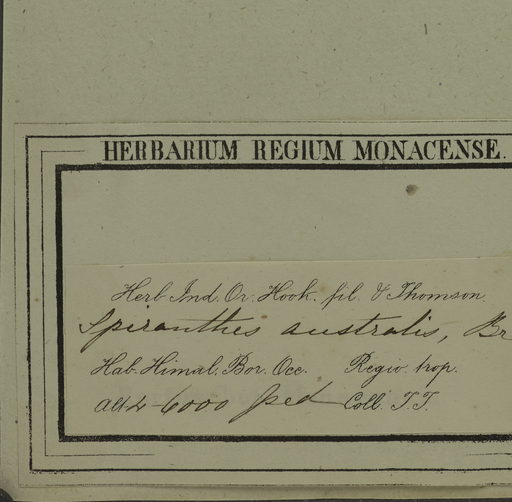 HERBARIUM REGIUM MONACENSE.
Herb. Ind. Or. Hook. fil. & Thomson.
Spiranthes australis, Br
Hab. Himal. Bor. Occ. Regio trop.
Alt. 2-6000 ped Coll. T.T.